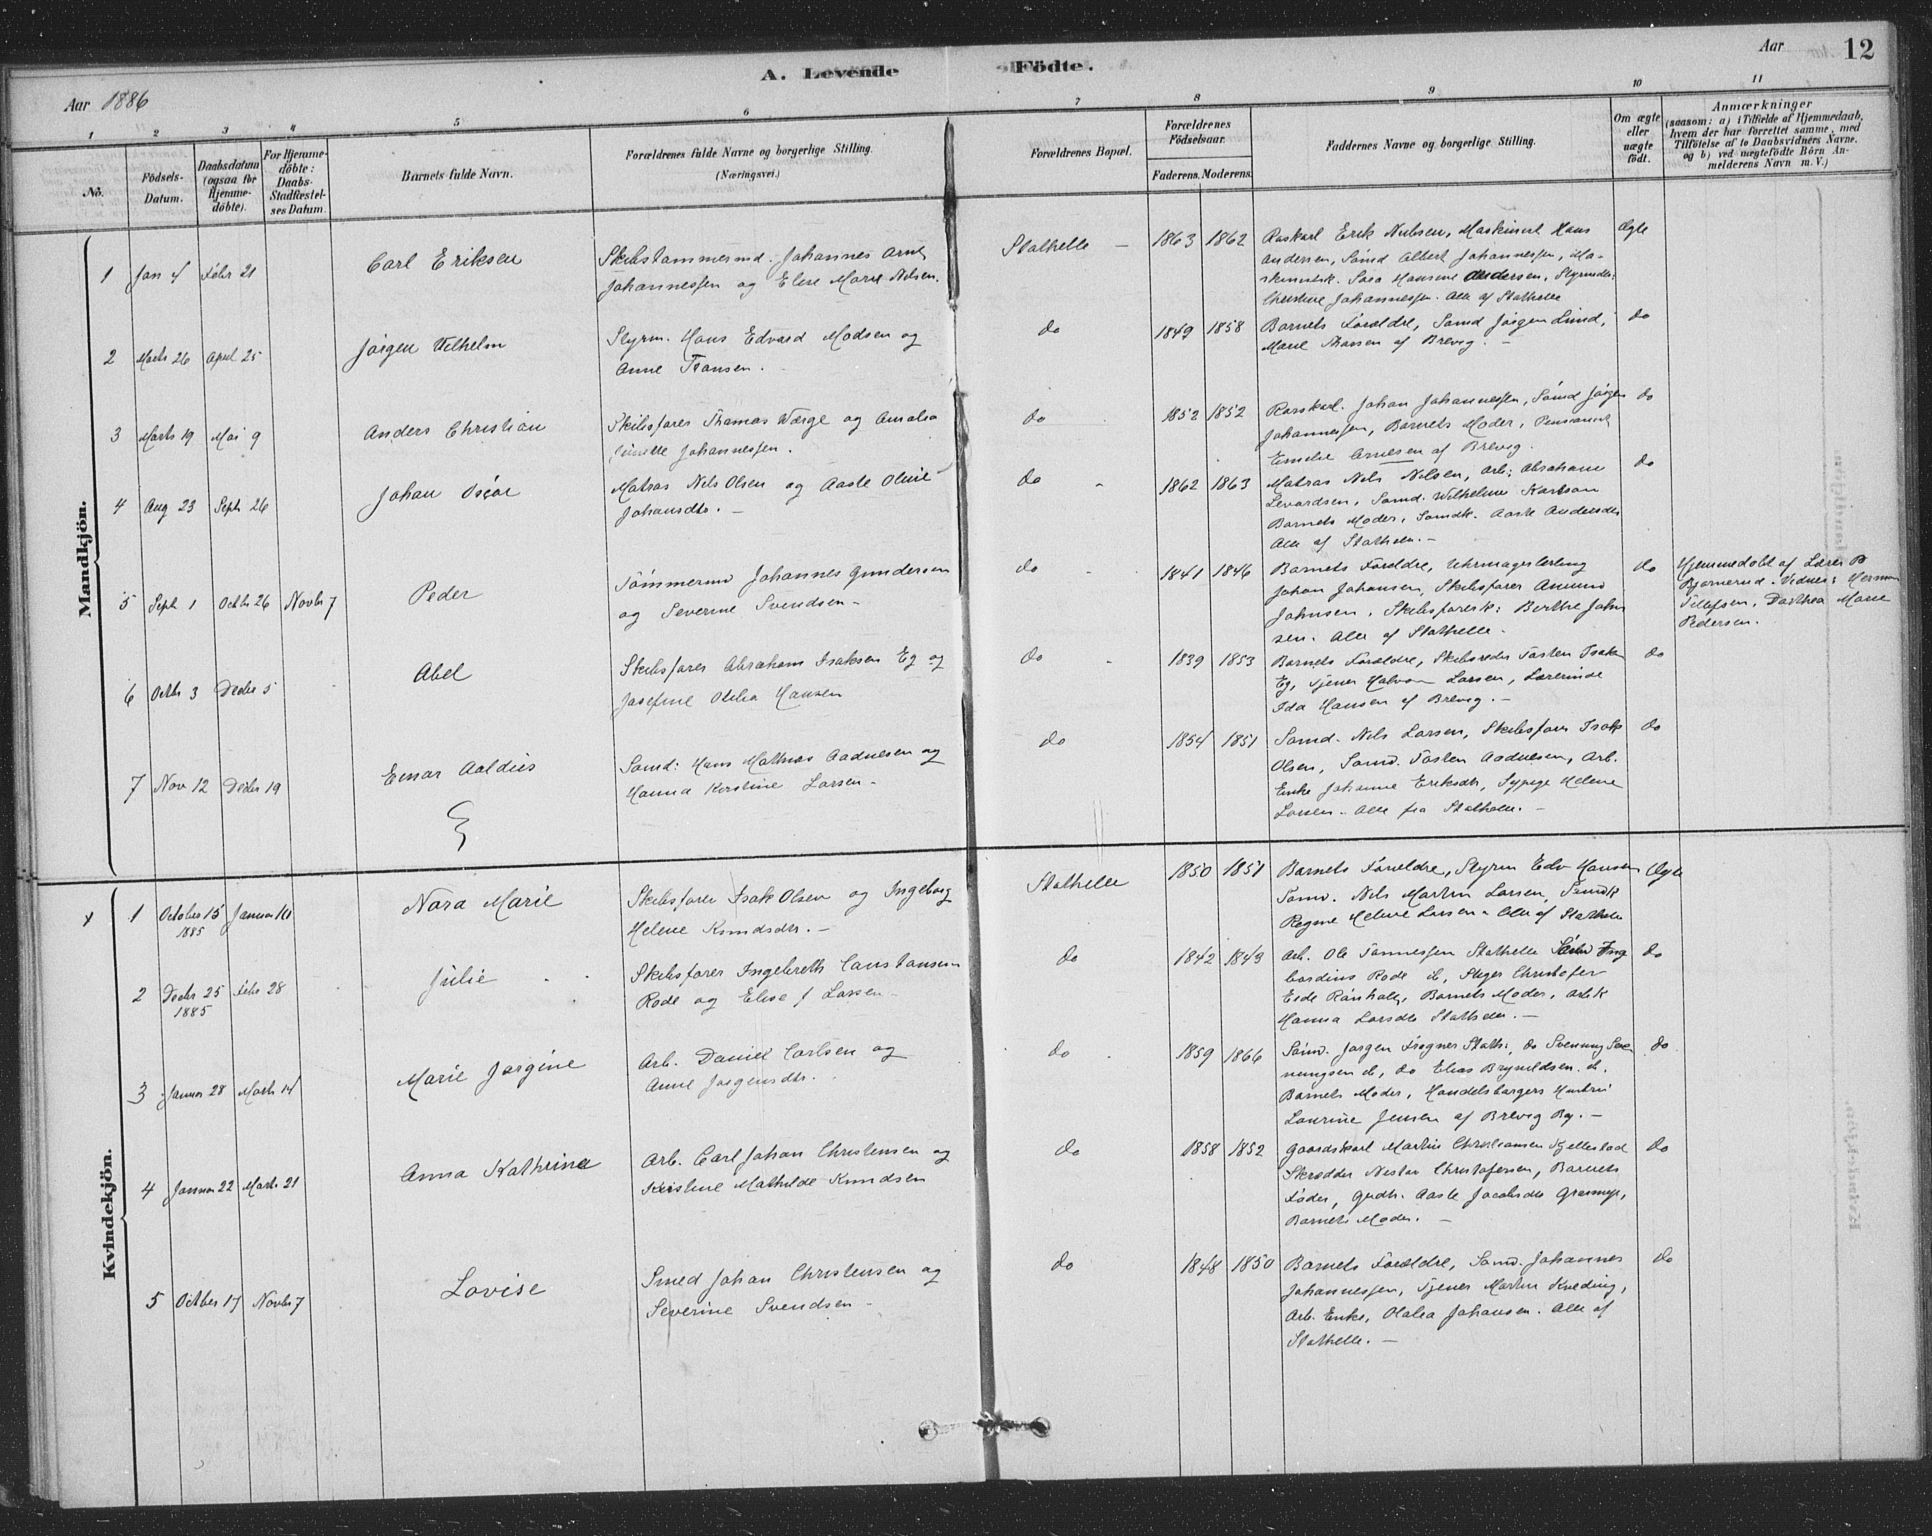 A. Levende Födte.
Aar 12
Aar 1886
1 2 3 4 5 6 7 8 9 10 11
No.
Födsels-Datum.
Daabsdatum (ogsaa for Hjemme-döbte).
For Hjemme-döbte: Daabs-Stadfæstel-ses Datum.
Barnets fulde Navn.
Forældrenes fulde Navne og borgerlige Stilling.
(Næringsvei.)
Forældrenes Bopæl.
Forældrenes Födselsaar.
Faderens. Moderens.
Faddernes Navne og borgerlige Stilling.
Om ægte eller uægte födt.
Anmærkninger
(saasom: a) i Tilfælde af Hjemmedaab,
hvem der har forrettet samme, med
Tilföielse af to Daabsvidners Navne.
og b) ved uægtefödte Börn An-
melderens Navn m. V.)
Mandkjön.
1 Jan 4 Febr 21 Carl Eriksen
Skibstømmermd. Johannes Arnt
Johannessen og Elese Marie Nilsen.
Stathelle 1863 1862
Baskarl Erik Nielsen, Maskinist Hans
Andersen, Sømd Albert Johannessen, Ma-
skinistk. Sara Hansine Andersen, Styrmdsk:
Christine Johannessen. Alle af Stathelle
Ægte
2 Marts 26 April 25 Jørgen Wilhelm
Styrm. Hans Edvard Madsen og
Anne Fransen.
do 1849 1858
Barnets Forældre, Sømd Jørgen Lund,
Marie Thorsen af Brevig.
do
3 Marts 19 Mai 9 Anders Christian
Skibsfører Thomas Værge og Amalia
Johannessen.
do 1852 1852
Johan Johannessen, Sømd Jørgen
Johannessen, Barnets Moder, Pensionist
Emelie Arnesen af Brevig.
do
4 Aug 23 Sept 26 Johan Oscar
Matros Nils Olsen og Aaste Oline
Johansdtr.
do 1862 1863
Matros Nils Nilsen, Arb: Abraham
Levardsen, Sømd. Wilhelm Karlson
Barnets Moder, Sømdk. Aaste Andersdtr
Alle af Stathelle.
do
5 Sept 1 Octbr 26 Novbr 7 Peder
Tømmermd Johannes Gundersen
og Severine Svendsen
do 1841 1846
Barnets Forældre, Uhrmagerlerling
Johan Johansen, Skibsfører Anund
Johnsen, Skibsførersk: Berthe John
sen. Alle af Stathelle.
do
Hjemmedøbt af Lærer P
Bjørnerud. Vidner: Herman
Tellefsen, Dorthea Marie
Pedersen.
6 Octbr 3 Decbr 5 Abel
Skibsfører Abraham Isaksen Eg og
Josefine Otilia Hansen
do 1839 1853
Barnets Forældre, Skibsreder Tosten Isaksen
Eg, Tjener Halvor Larsen, Lærerinde
Ida Hansen af Brevig.
do
7 Nov 12 Decbr 19 Einar Aaldius
Sømd: Hans Mathias Aadnesen og
Hanna Kirstine Larsen
do 1854 1851
Sømd. Nils Larsen, Skibsfører Isak
Olsen, Sømd. Tosten Aadnesen, Arb.
Enke Johanne Eriksdtr, Sypige Helene
Larsen. Alle fra Stathelle.
do
Kvindekjön.
1 October 15 1885 Januar 10 Nora Marie
Skibsfører Isak Olsen og Ingeborg
Helene Knudsdtr.
Stathelle 1850 1851
Barnets Forældre, Styrm Edv Hansen
Sømd. Nils Martin Larsen, Sømdk
Regine Helene Larsen. Alle af Stathelle
Ægte
2 Decbr 25 1885 Febr 28 Julie
Skibsfører Ingebreth Constansen
Rode og Elise J Larsen
do 1842 1849
Arb. Ole Tønnessen Stathelle
Rode do, Christofer
Eide Rønholt, Barnets Moder, Arbk
Hanna Larsdtr Stathelle.
do
3 Januar 28 Marts 14 Marie Jørgine
Arb. Daniel Carlsen og
Anne Jørgensdtr.
do 1859 1866
Sømd. Jørgen Fragner Stath:, do Svenning Sven
nungsen do, do Elias Brynildsen do.
Barnets Moder, Handelsborgers Hustru
Laurine Jensen af Brevig By.
do
4 Januar 22 Marts 21 Anna Kathrine
Arb. Carl Johan Christensen og
Kristine Mathilde Knudsen
do 1858 1852
Gaardskarl Martin Christiansen Fjellestad
Skrædder Nestor Christofersen, Barnets
Fader, Aaste Jacobsdtr
Barnets Moder.
do
5 October 17 Novbr 7 Lovise
Smed Johan Christensen og
Severine Svendsen
do 1848 1850
Barnets Forældre, Sømd. Johannes
Johannessen, Tjener Martin Kneding,
Arb. Enke, Olalia Johansen. Alle af
Stathelle.
do